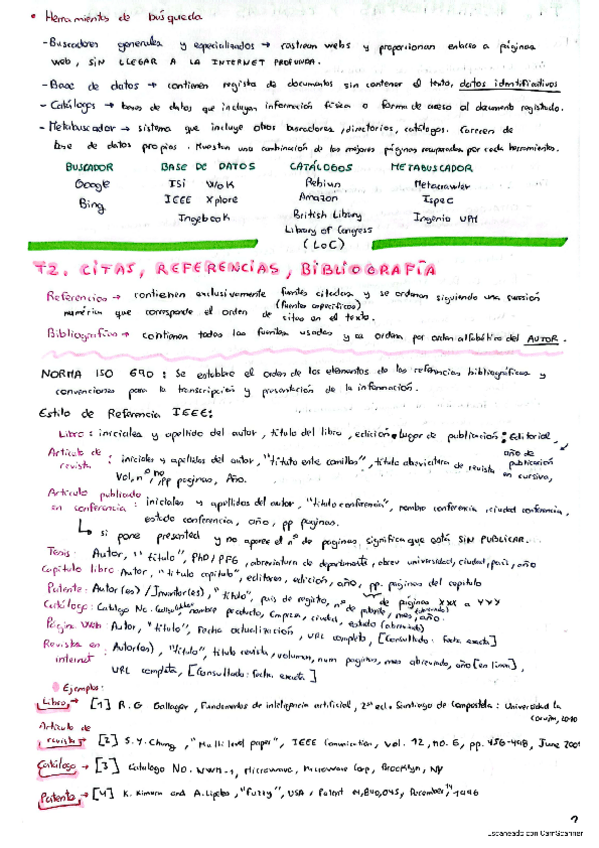 • Herramientas de búsqueda
- Buscadores generales y especializados → rastrean webs y proporcionan enlaces a páginas
web, SIN LLEGAR A LA INTERNET PROFUNDA.
- Base de datos → contienen registro de documentos sin contener el texto, datos identificativos
- Catálogos → bases de datos que incluyen información física o forma de acceso al documento registrado.
- Metabuscador → sistema que incluye otros buscadores, directorios, catálogos. Carecen de
base de datos propias. Muestran una combinación de las mejores páginas recuperadas por cada herramienta.
BUSCADOR BASE DE DATOS CATÁLOGOS METABUSCADOR
Google ISI WoK Rebiun Metacrawler
Bing IEEE Xplore Amazon Ispec
Ingebook British Library Ingenio UPM
Library of Congress
(LoC)
T2. CITAS, REFERENCIAS, BIBLIOGRAFÍA
Referencias → contienen exclusivamente fuentes citadas y se ordenan siguiendo una sucesión
(fuentes específicas)
numérica que corresponde el orden de citas en el texto.
Bibliografías → contienen todas las fuentes usadas y se ordena por orden alfabético del AUTOR.
NORMA ISO 690: Se establece el orden de los elementos de las referencias bibliográficas y
convenciones para la transcripción y presentación de la información.
Estilo de Referencia IEEE:
Libro: iniciales y apellido del autor, título del libro, edición, lugar de publicación: Editorial,
año de publicación
Artículo de revista: iniciales y apellidos del autor, "título entre comillas", título abreviatura de revista en cursiva,
Vol, nº, pp paginas, Año.
Artículo publicado en conferencia: iniciales y apellidos del autor, "título conferencia", nombre conferencia, ciudad conferencia,
estado conferencia, año, pp paginas.
↳ si pone presented y no aparece el nº de paginas, significa que está SIN PUBLICAR...
Tesis: Autor, "título", PhD/PFG, abreviatura de departamento, abrev universidad, ciudad, país, año
Capítulo libro Autor, "título capítulo", editores, edición, año, pp. paginas del capitulo
de páginas XXX a YYY
Patente: Autor(es)/Inventor(es), "título", país de registro, nº de patente, mes, año.
Catálogo: Catálogo No. nombre producto, Empresa, ciudad, estado (abreviado)
Página Web: Autor, "título", Fecha actualización, URL completo, [Consultado: fecha exacta]
Revista en internet: Autor(es), "título", título revista, volumen, num paginas, mes abreviado, año [en línea],
URL completa, [Consultado: fecha exacta]
Ejemplos:
Libro → [1] R.G Gallager, Fundamentos de inteligencia artificial, 2ª ed. Santiago de Compostela: Universidad la
Coruña, 2010
Artículo de revista → [2] S.Y. Chung, "Multi level paper", IEEE Comunication, Vol. 12, no. 6, pp. 456-498, June 2001
Catálogo → [3] Catalogo No. WWM-1, Microwave, Microwave Corp, Brooklyn, NY
Patente → [4] K. Kimura and A. Lipeles, "Fuzzy", USA Patent 14,860,045, December, 14, 1996
Escaneado con CamScanner